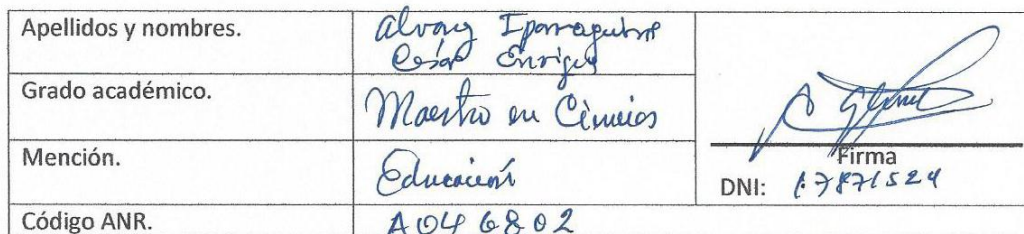 Apellidos y nombres.
Alvarez Iparraguirre
César Enrique
Grado académico.
Maestro en Ciencias
Mención.
Educación
Firma
DNI: 17871524
Código ANR.
A046802